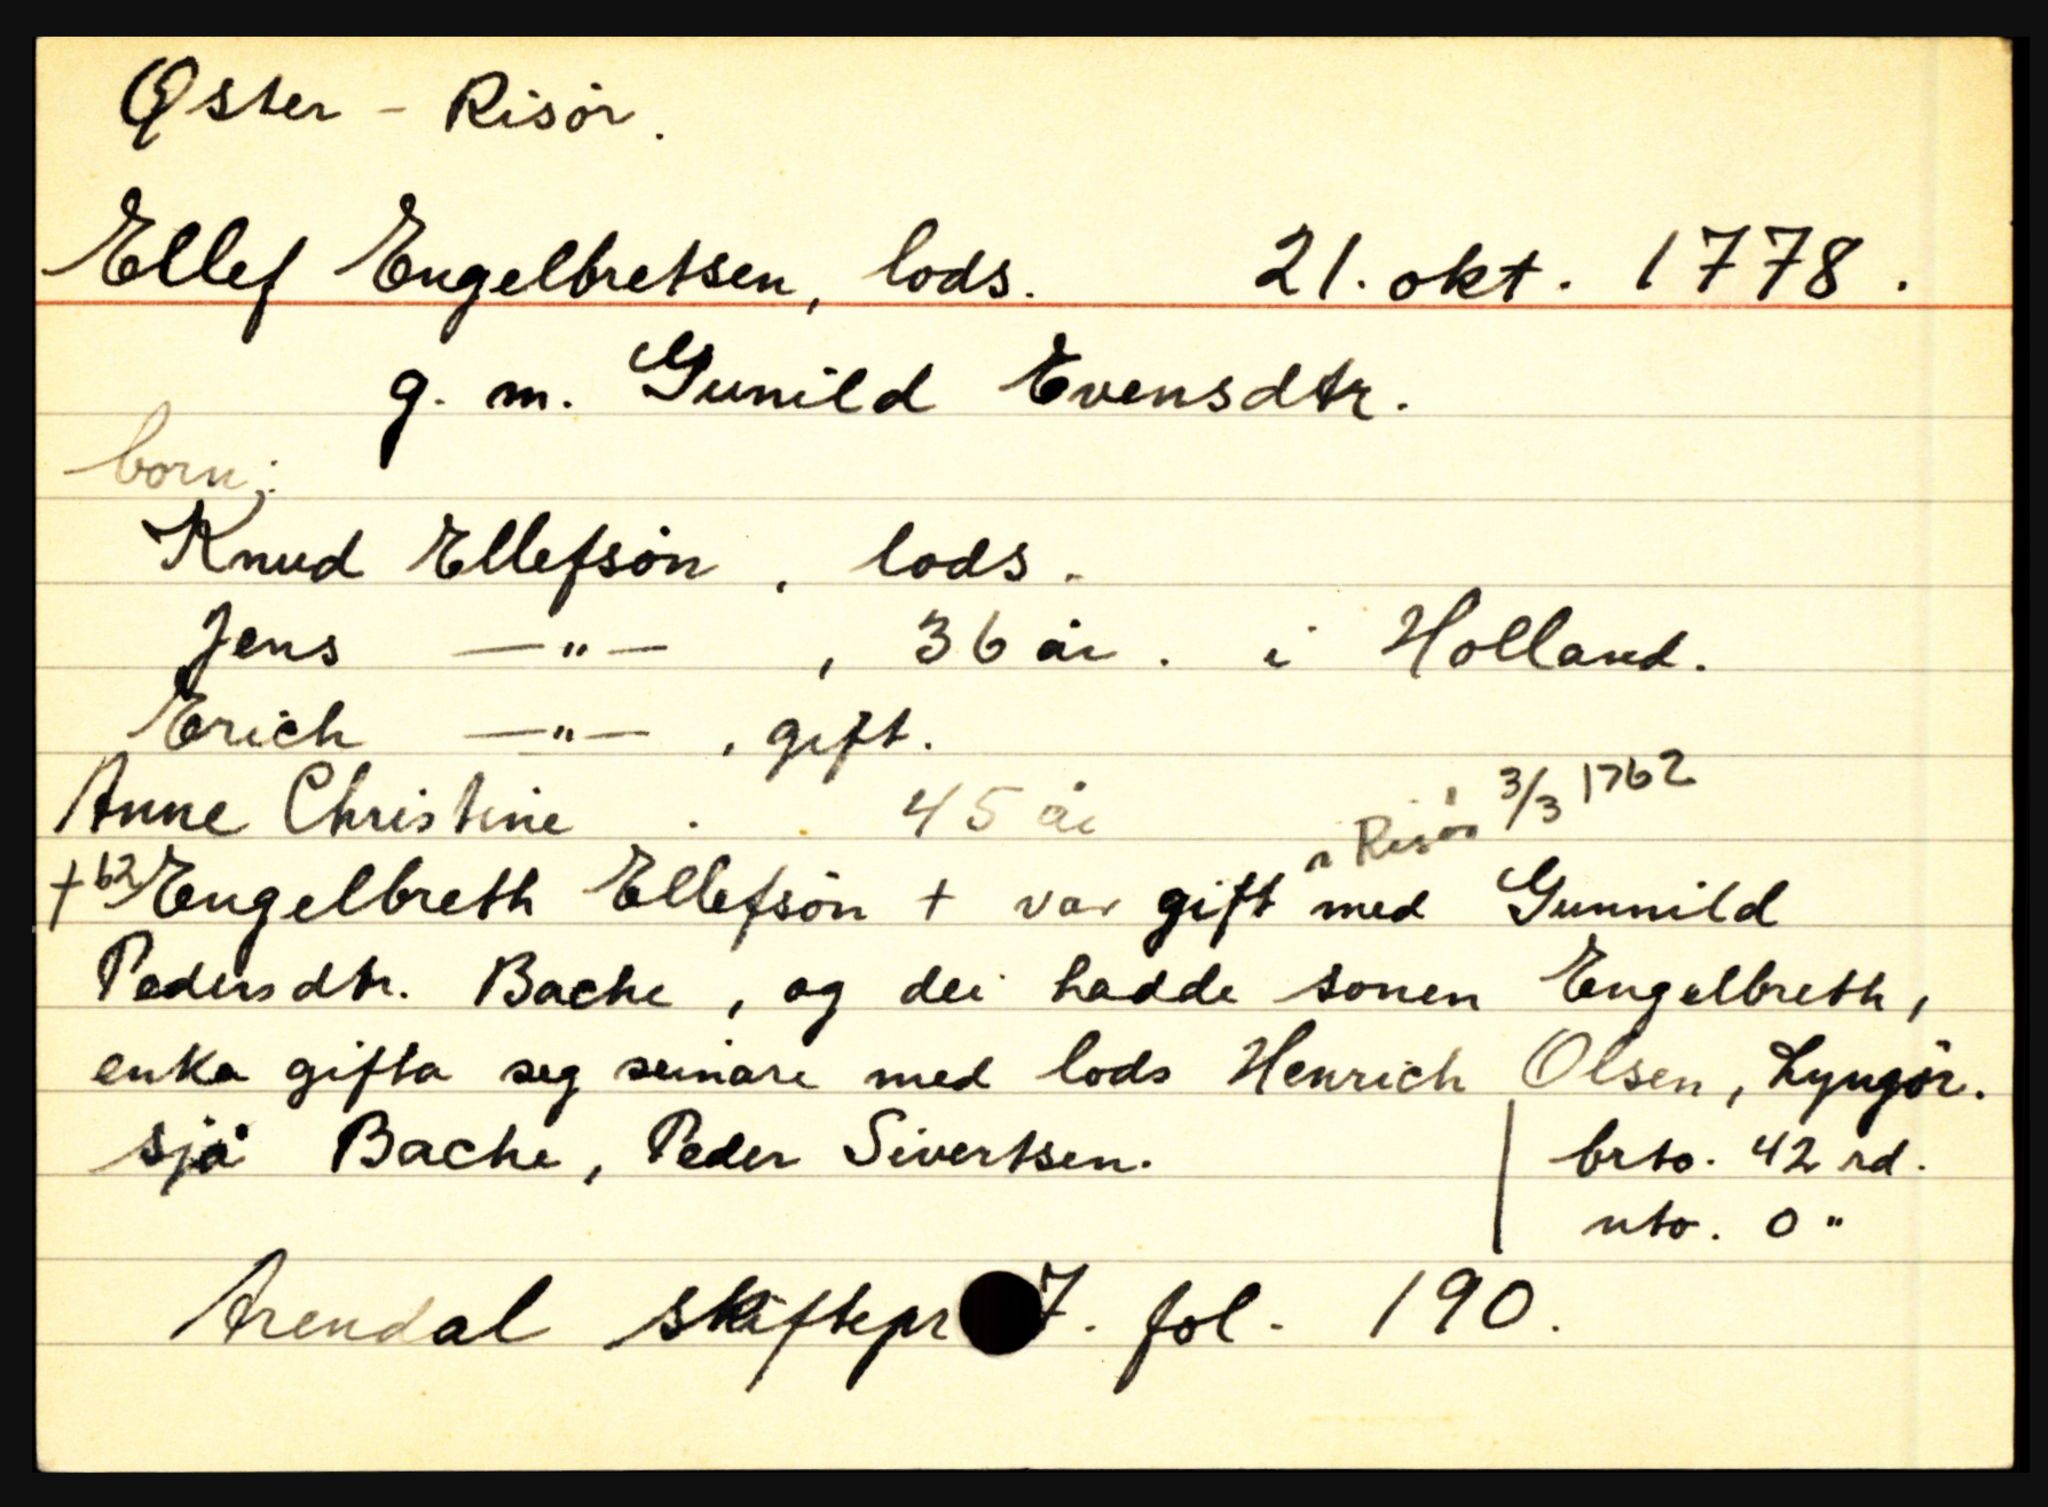 Øster - Risør.
Ellef Engelbretsen, lods. 21. okt. 1778.
g. m. Gunild Evensdtr.
born:
Knud Ellefsøn, lods.
Jens —"—, 36 år. i Holland.
Erich —"—, gift.
Anne Christine. 45 år
i Risør 3/3 1762
+62 Engelbreth Ellefsøn + var gift med Gunnild
Pedersdtr. Bache, og dei hadde sonen Engelbreth,
enka gifta seg seinare med lods Henrich Olsen, Lyngør.
sjå Bache, Peder Sivertsen. | brto. 42 rd.
nto. 0 "
Arendal skiftepr 7. fol. 190.